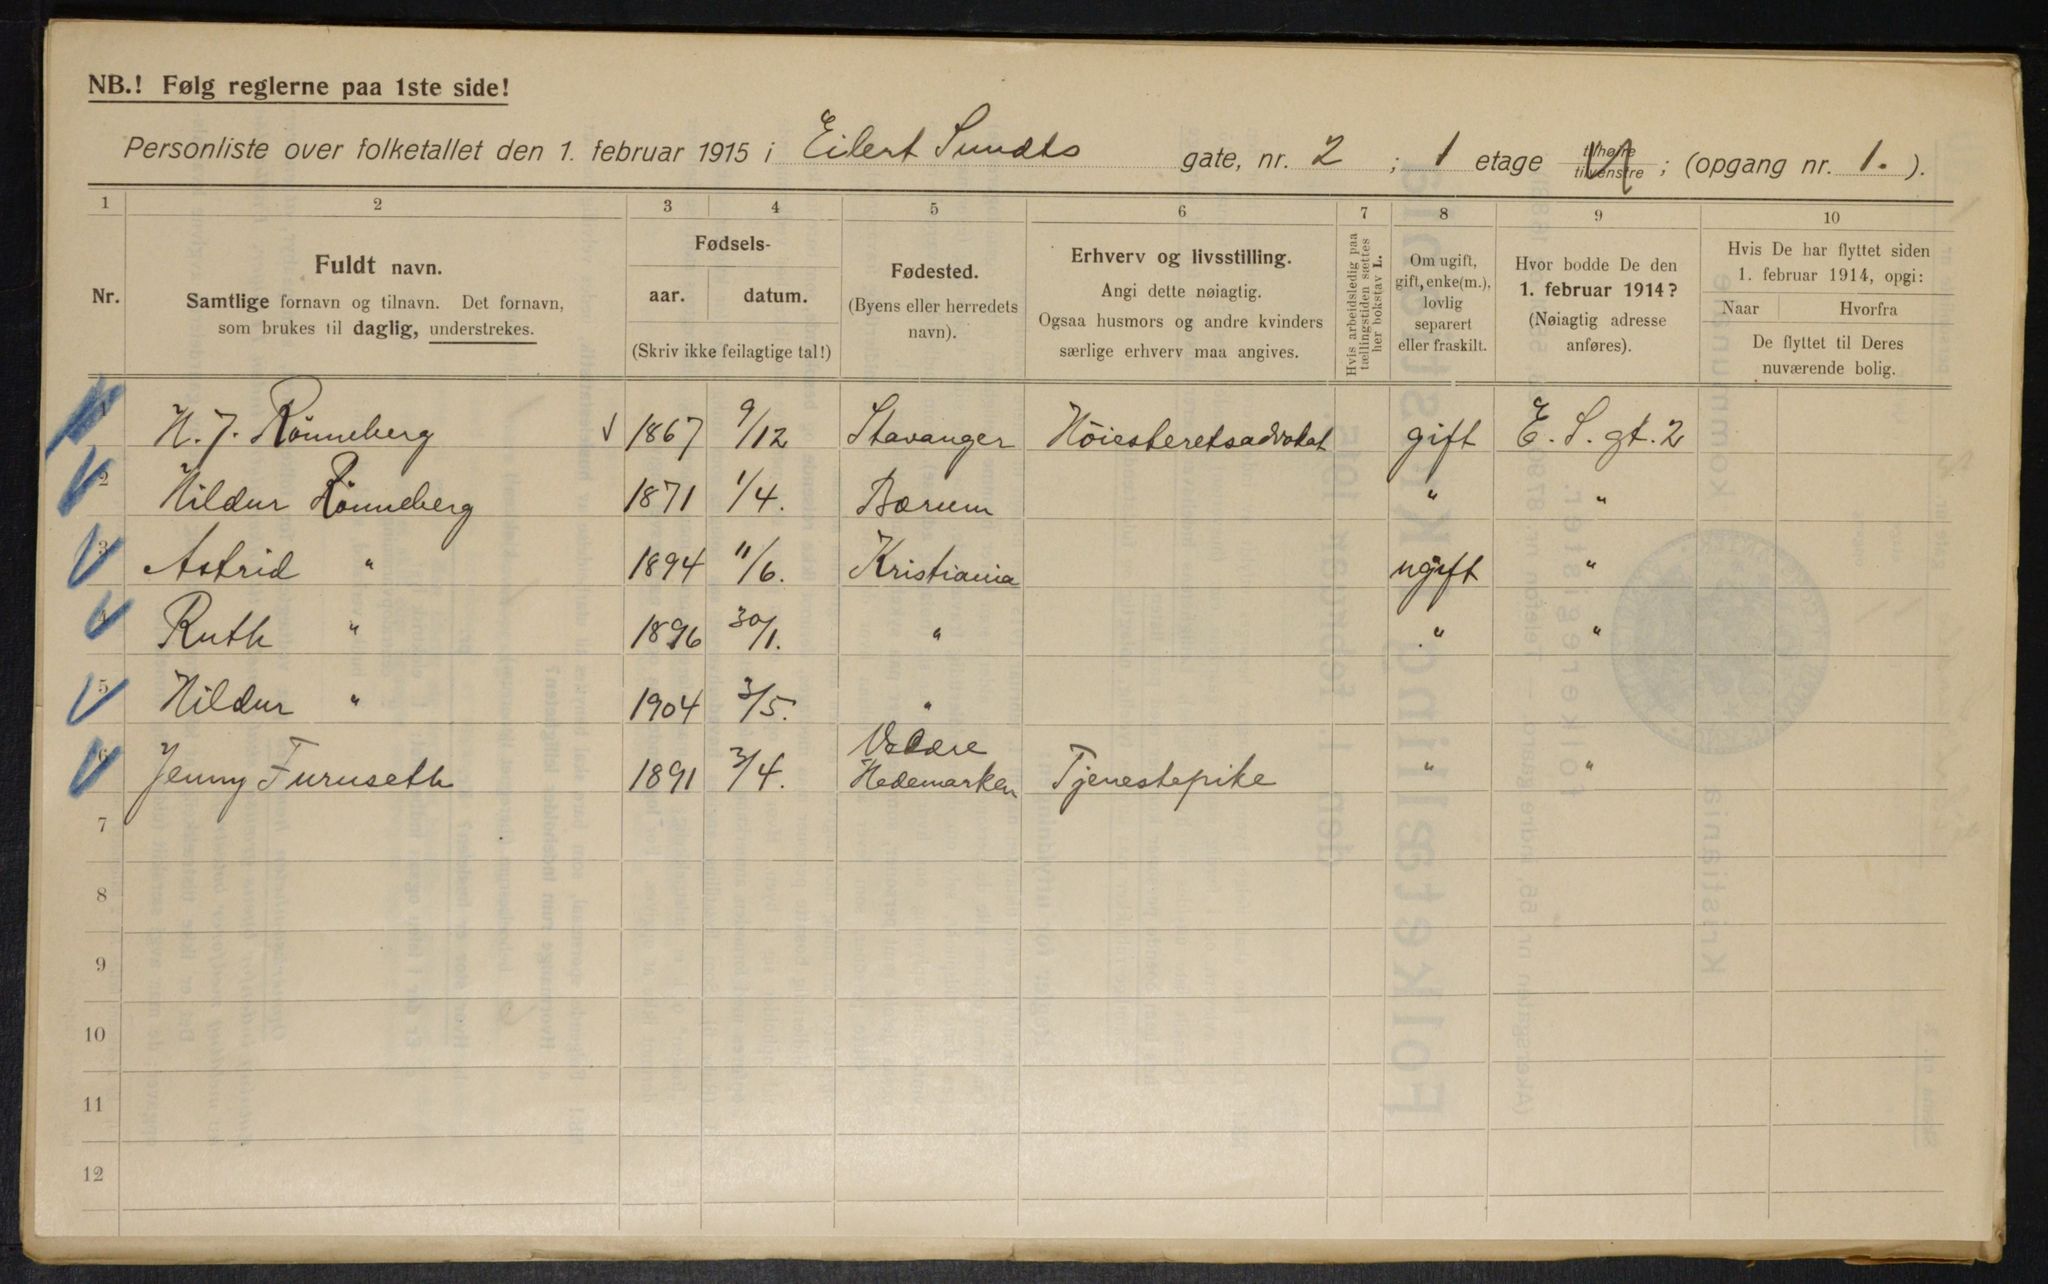 NB.! Følg reglerne paa 1ste side!
Personliste over folketallet den 1. februar 1915 i Eilert Sundts gate, nr. 2 ; 1 etage tilhøire tilvenstre ; (opgang nr. 1. ).
1 2 3 4 5 6 7 8 9 10
Nr.
Fuldt navn.
Samtlige fornavn og tilnavn. Det fornavn,
som brukes til daglig, understrekes.
Fødsels-
aar. datum.
(Skriv ikke feilagtige tal!)
Fødested.
(Byens eller herredets
navn).
Erhverv og livsstilling.
Angi dette nøiagtig.
Ogsaa husmors og andre kvinders
særlige erhverv maa angives.
Hvis arbeidsledig paa
tællingstiden sættes
her bokstav L.
Om ugift,
gift, enke(m.),
lovlig
separert
eller fraskilt.
Hvor bodde De den
1. februar 1914?
(Nøiagtig adresse
anføres).
Hvis De har flyttet siden
1. februar 1914, opgi:
Naar Hvorfra
De flyttet til Deres
nuværende bolig.
1 N. J. Rönneberg 1867 9/12 Stavanger Höiesteretsadvokat gift E. S. gt. 2
2 Hildur Rönneberg 1871 1/4. Bærum " "
3 Astrid " 1894 11/6. Kristiania ugift "
4 Ruth " 1896 30/1. " " "
5 Hildur " 1904 3/5. "
6 Jenny Furuseth 1891 3/4. Hedemarken Tjenestepike " "
7
8
9
10
11
12